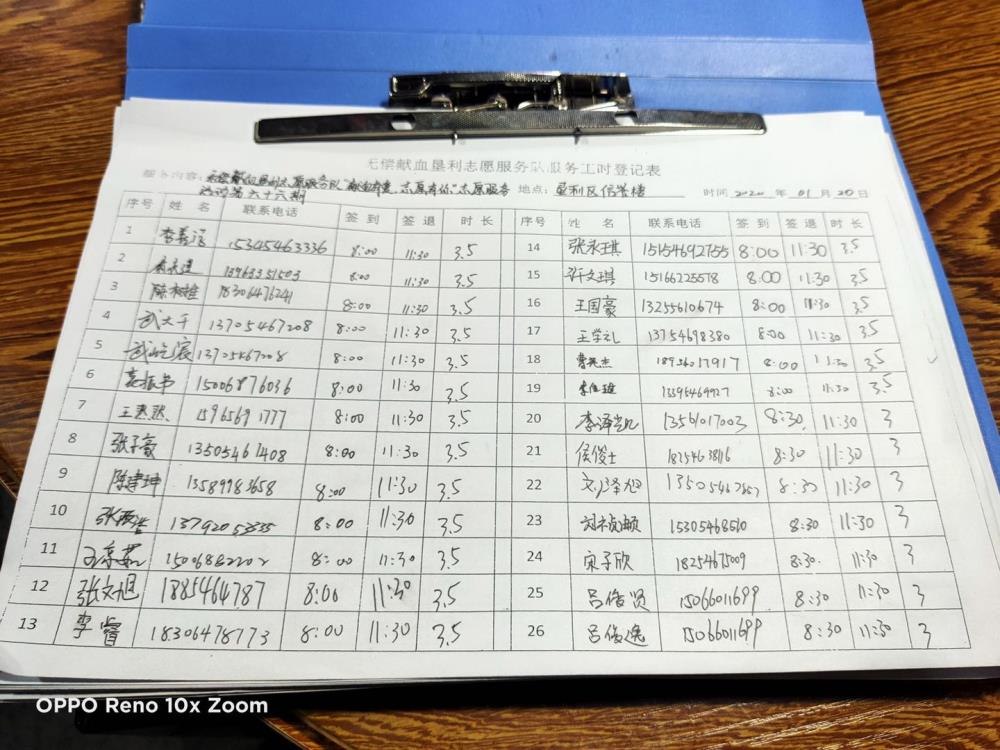 无偿献血垦利志愿服务队服务工时登记表
服务内容: 无偿献血垦利志愿服务队"献血奉献 志愿有你"志愿服务 地点: 垦利区信誉楼 时间 2020 年 01 月 20 日
活动第六十六期
序号 姓 名 联系电话 签 到 签 退 时 长 序号 姓 名 联系电话 签 到 签 退 时 长
1 15345463336 8:00 11:30 3.5 14 张永琪 15154692755 8:00 11:30 3.5
2 13963351503 8:00 11:30 3.5 15 许文琪 15166225578 8:00 11:30 3.5
3 18306476241 8:00 11:30 3.5 16 王国豪 13255610674 8:00 11:30 3.5
4 武大千 13705467208 8:00 11:30 3.5 17 王学礼 13754698380 8:00 11:30 3.5
5 13705467208 8:00 11:30 3.5 18 8:00 11:30 3.5
6 袁振书 15006876036 8:00 11:30 3.5 19 8:00 11:30 3.5
7 王惠然 15965691777 8:00 11:30 3.5 20 李泽凯 13561017003 8:30 11:30 3
8 张子豪 13505461408 8:00 11:30 3.5 21 侯俊士 8:30 11:30 3
9 陈建坤 13589983658 8:00 11:30 3.5 22 刘泽旭 8:30 11:30 3
10 8:00 11:30 3.5 23 15305468510 8:30 11:30 3
11 15006882202 8:00 11:30 3.5 24 宋子欣 18254675009 8:30 11:30 3
12 张文旭 1885464787 8:00 11:30 3.5 25 吕俊贤 15066011699 8:30 11:30 3
13 李睿 18306478773 8:00 11:30 3.5 26 吕俊逸 15066011699 8:30 11:30 3
OPPO Reno 10x Zoom